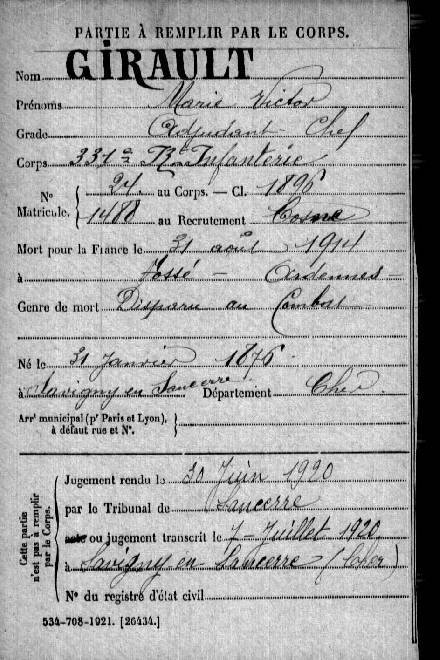 PARTIE À REMPLIR PAR LE CORPS.
Nom GIRAULT
Prénoms Marie Victor
Grade Adjudant Chef
Corps 331e R. Infanterie
No Matricule. 24 au Corps. — Cl. 1896
1488 au Recrutement Cosne
Mort pour la France le 31 août 1914
à Fossé - Ardennes
Genre de mort Disparu au Combat
Né le 31 Janvier 1876
à Savigny en Sancerre Département Cher
Arrt municipal (pr Paris et Lyon), à défaut rue et No.
Cette partie n'est pas à remplir par le Corps.
Jugement rendu le 30 Juin 1920
par le Tribunal de Sancerre
acte ou jugement transcrit le 7 Juillet 1920
à Savigny en Sancerre (Cher)
No du registre d'état civil
534-708-1921. [26434.]